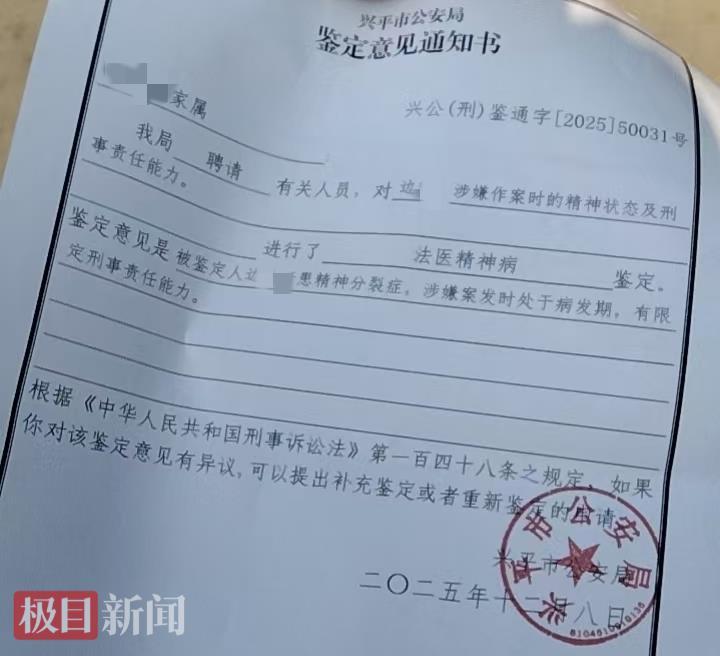 兴平市公安局
鉴定意见通知书
兴公(刑)鉴通字[2025]50031号
家属
我局 聘请 有关人员，对 边 涉嫌作案时的精神状态及刑
事责任能力。
进行了 法医精神病 鉴定。
鉴定意见是 被鉴定人边 患精神分裂症，涉嫌案发时处于病发期，有限
定刑事责任能力。
根据《中华人民共和国刑事诉讼法》第一百四十八条之规定，如果
你对该鉴定意见有异议，可以提出补充鉴定或者重新鉴定的申请。
兴平市公安局
二〇二五年十二月八日
兴平市公安局
极目新闻